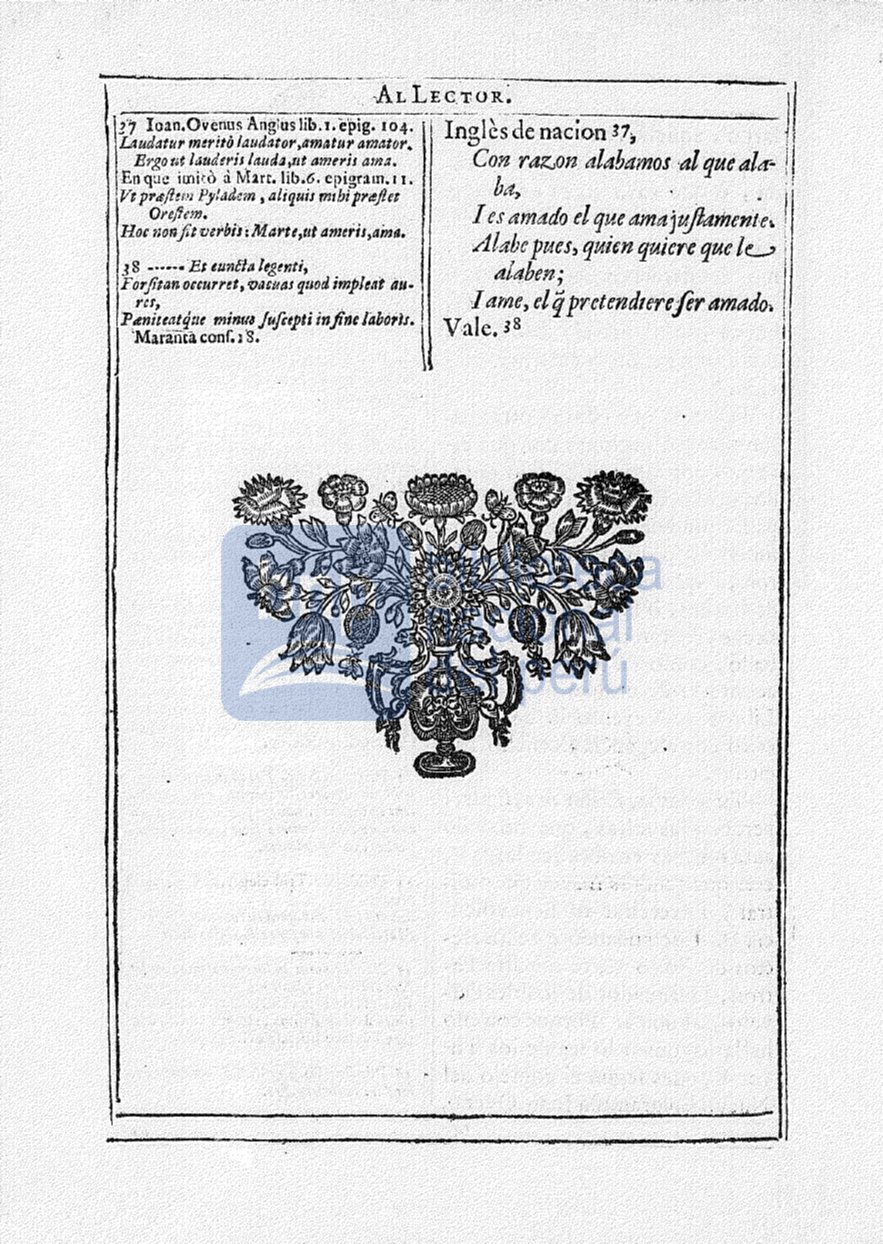 AL LECTOR.
37 Ioan. Ovenus Anglus lib. 1. epig. 104.
Laudatur meritò laudator, amatur amator.
Ergo ut lauderis lauda, ut ameris ama.
En que imitò à Mart. lib. 6. epigram. 11.
Vt præstem Pyladem, aliquis mihi præstet
Orestem.
Hoc non fit verbis: Marte, ut ameris, ama.
38 ------ Et cuncta legenti,
Forsitan occurret, vacuas quod impleat au-
res,
Pæniteatque minus suscepti in fine laboris.
Maranta cons. 38.
Inglès de nacion 37,
Con razon alabamos al que ala-
ba,
I es amado el que ama justamente.
Alabe pues, quien quiere que le
alaben;
I ame, el q̃ pretendiere ser amado.
Vale. 38
Biblioteca
Nacional
del Perú